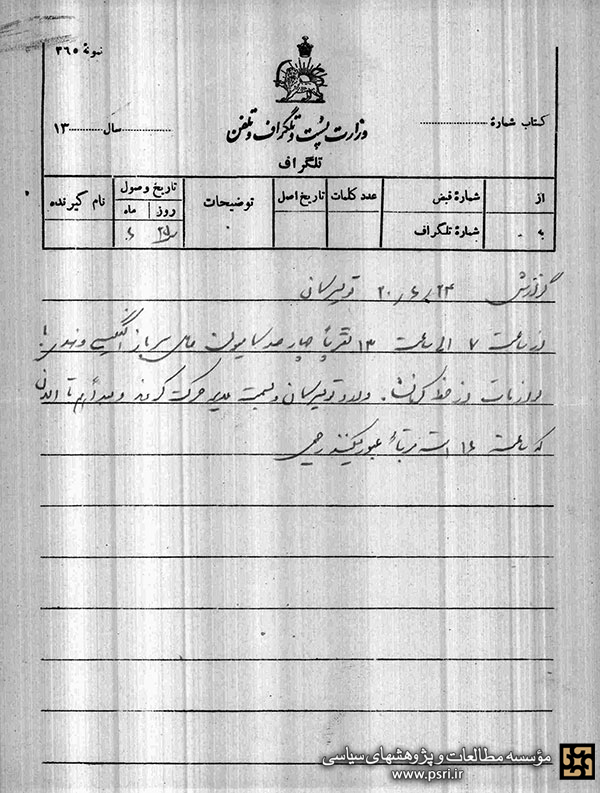 نمونهٔ ۳۶۵
کتاب شمارهٔ
وزارت پست و تلگراف و تلفن
سال ۱۳
تلگراف
از
شمارهٔ قبض
عدد کلمات
تاریخ اصل
توضیحات
تاریخ وصول
نام گیرنده
روز
ماه
به
شمارهٔ تلگراف
۲۵
۶
گزارش ۲۴/۶/۲۰ تویسرکان
از ساعت ۷ الی ساعت ۱۳ تقریباً چهارصد کامیون حامل سرباز انگلیسی و هندی با
لوازمات از خط کرمانشاه وارد تویسرکان و بسمت ملایر حرکت کردند و بعداً هم تا الان
که ساعت ۱۶ است مرتباً عبور میکنند رحیمی
مؤسسه مطالعات و پژوهشهای سیاسی
www.psri.ir